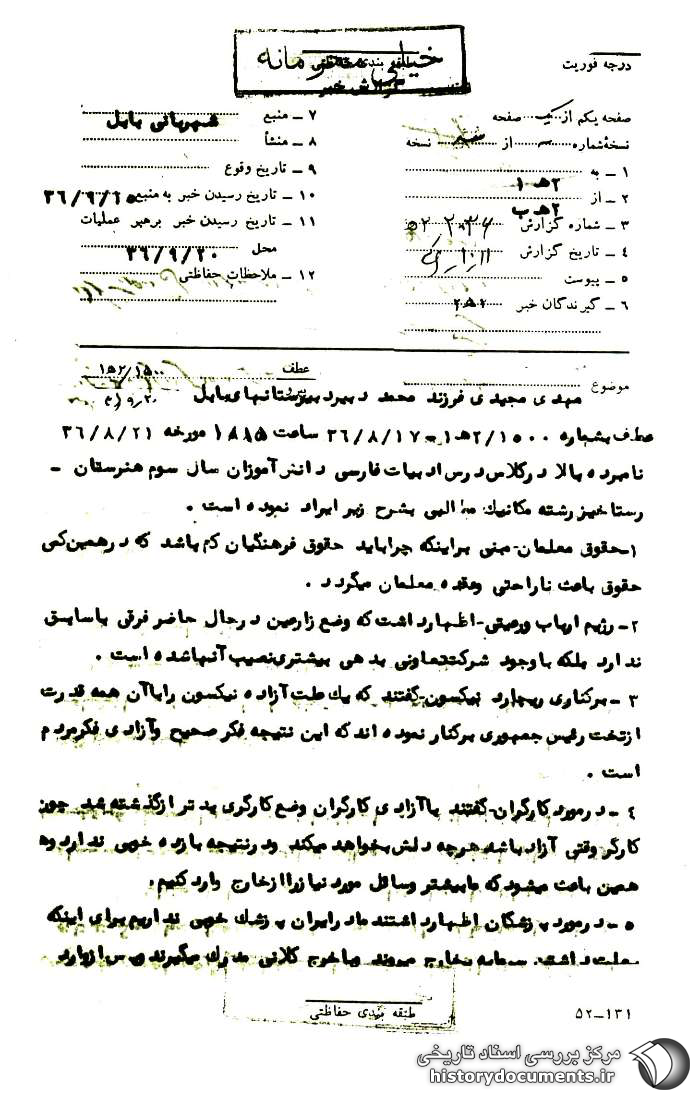 خیلی محرمانه
درجه فوریت
گزارش خبر
صفحه یکم از یک صفحه
نسخه شماره از نسخه
۱ – به ۱ه۲
۲ – از ۲ه‍ ب
۳ – شماره گزارش
۴ – تاریخ گزارش
۵ – پیوست
۶ – گیرندگان خبر
۷ – منبع شهربانی بابل
۸ – منشأ
۹ – تاریخ وقوع
۱۰ – تاریخ رسیدن خبر به منبع
۱۱ – تاریخ رسیدن خبر برهبر عملیات
محل ۳۶/۹/۲۰
۱۲ – ملاحظات حفاظتی
موضوع
عطف
پیرو
مهدی مجیدی فرزند محمد دبیر دبیرستانهای بابل
عطف بشماره ۱۵۰۰/۲ه‍۱ – ۳۶/۸/۱۷ ساعت ۱۸۸۵ مورخه ۳۶/۸/۲۱
نامبرده بالا در کلاس درس ادبیات فارسی دانش آموزان سال سوم هنرستان –
رستاخیز رشته مکانیک مطالبی بشرح زیر ایراد نموده است .
۱-حقوق معلمان-مبنی براینکه چرا باید حقوق فرهنگیان کم باشد که در همین کمی
حقوق باعث ناراحتی وعقده معلمان میگردد .
۲- رژیم ارباب ورعیتی-اظهار داشت که وضع زارعین در حال حاضر فرقی باسابق
ندارد بلکه با وجود شرکت تعاونی بدهی بیشتری نصیب آنها شده است .
۳ -برکناری ریچارد نیکسون-گفتند که یک ملت آزاده نیکسون را با آن همه قدرت
از تخت رئیس جمهوری برکنار نموده اند که این نتیجه فکر صحیح وآزادی فکر مردم
است .
٤ - در مورد کارگران-گفتند با آزادی کارگران وضع کارگری بدتر از گذشته شد چون
کارگر وقتی آزاد باشد هرچه دلش بخواهد میکند ودر نتیجه بازده خوبی ندارد وه
همین باعث میشود که ما بیشتر وسائل مورد نیاز را از خارج وارد کنیم .
۵ -در مورد پزشگان اظهار داشتند ما در ایران پزشک خوبی نداریم برای اینکه
بخارج میروند وبا خرج کلانی مدرک میگیرند وپس از وارد
طبقه بندی حفاظتی
۵۲–۱۳۱
مرکز بررسی اسناد تاریخی
historydocuments.ir